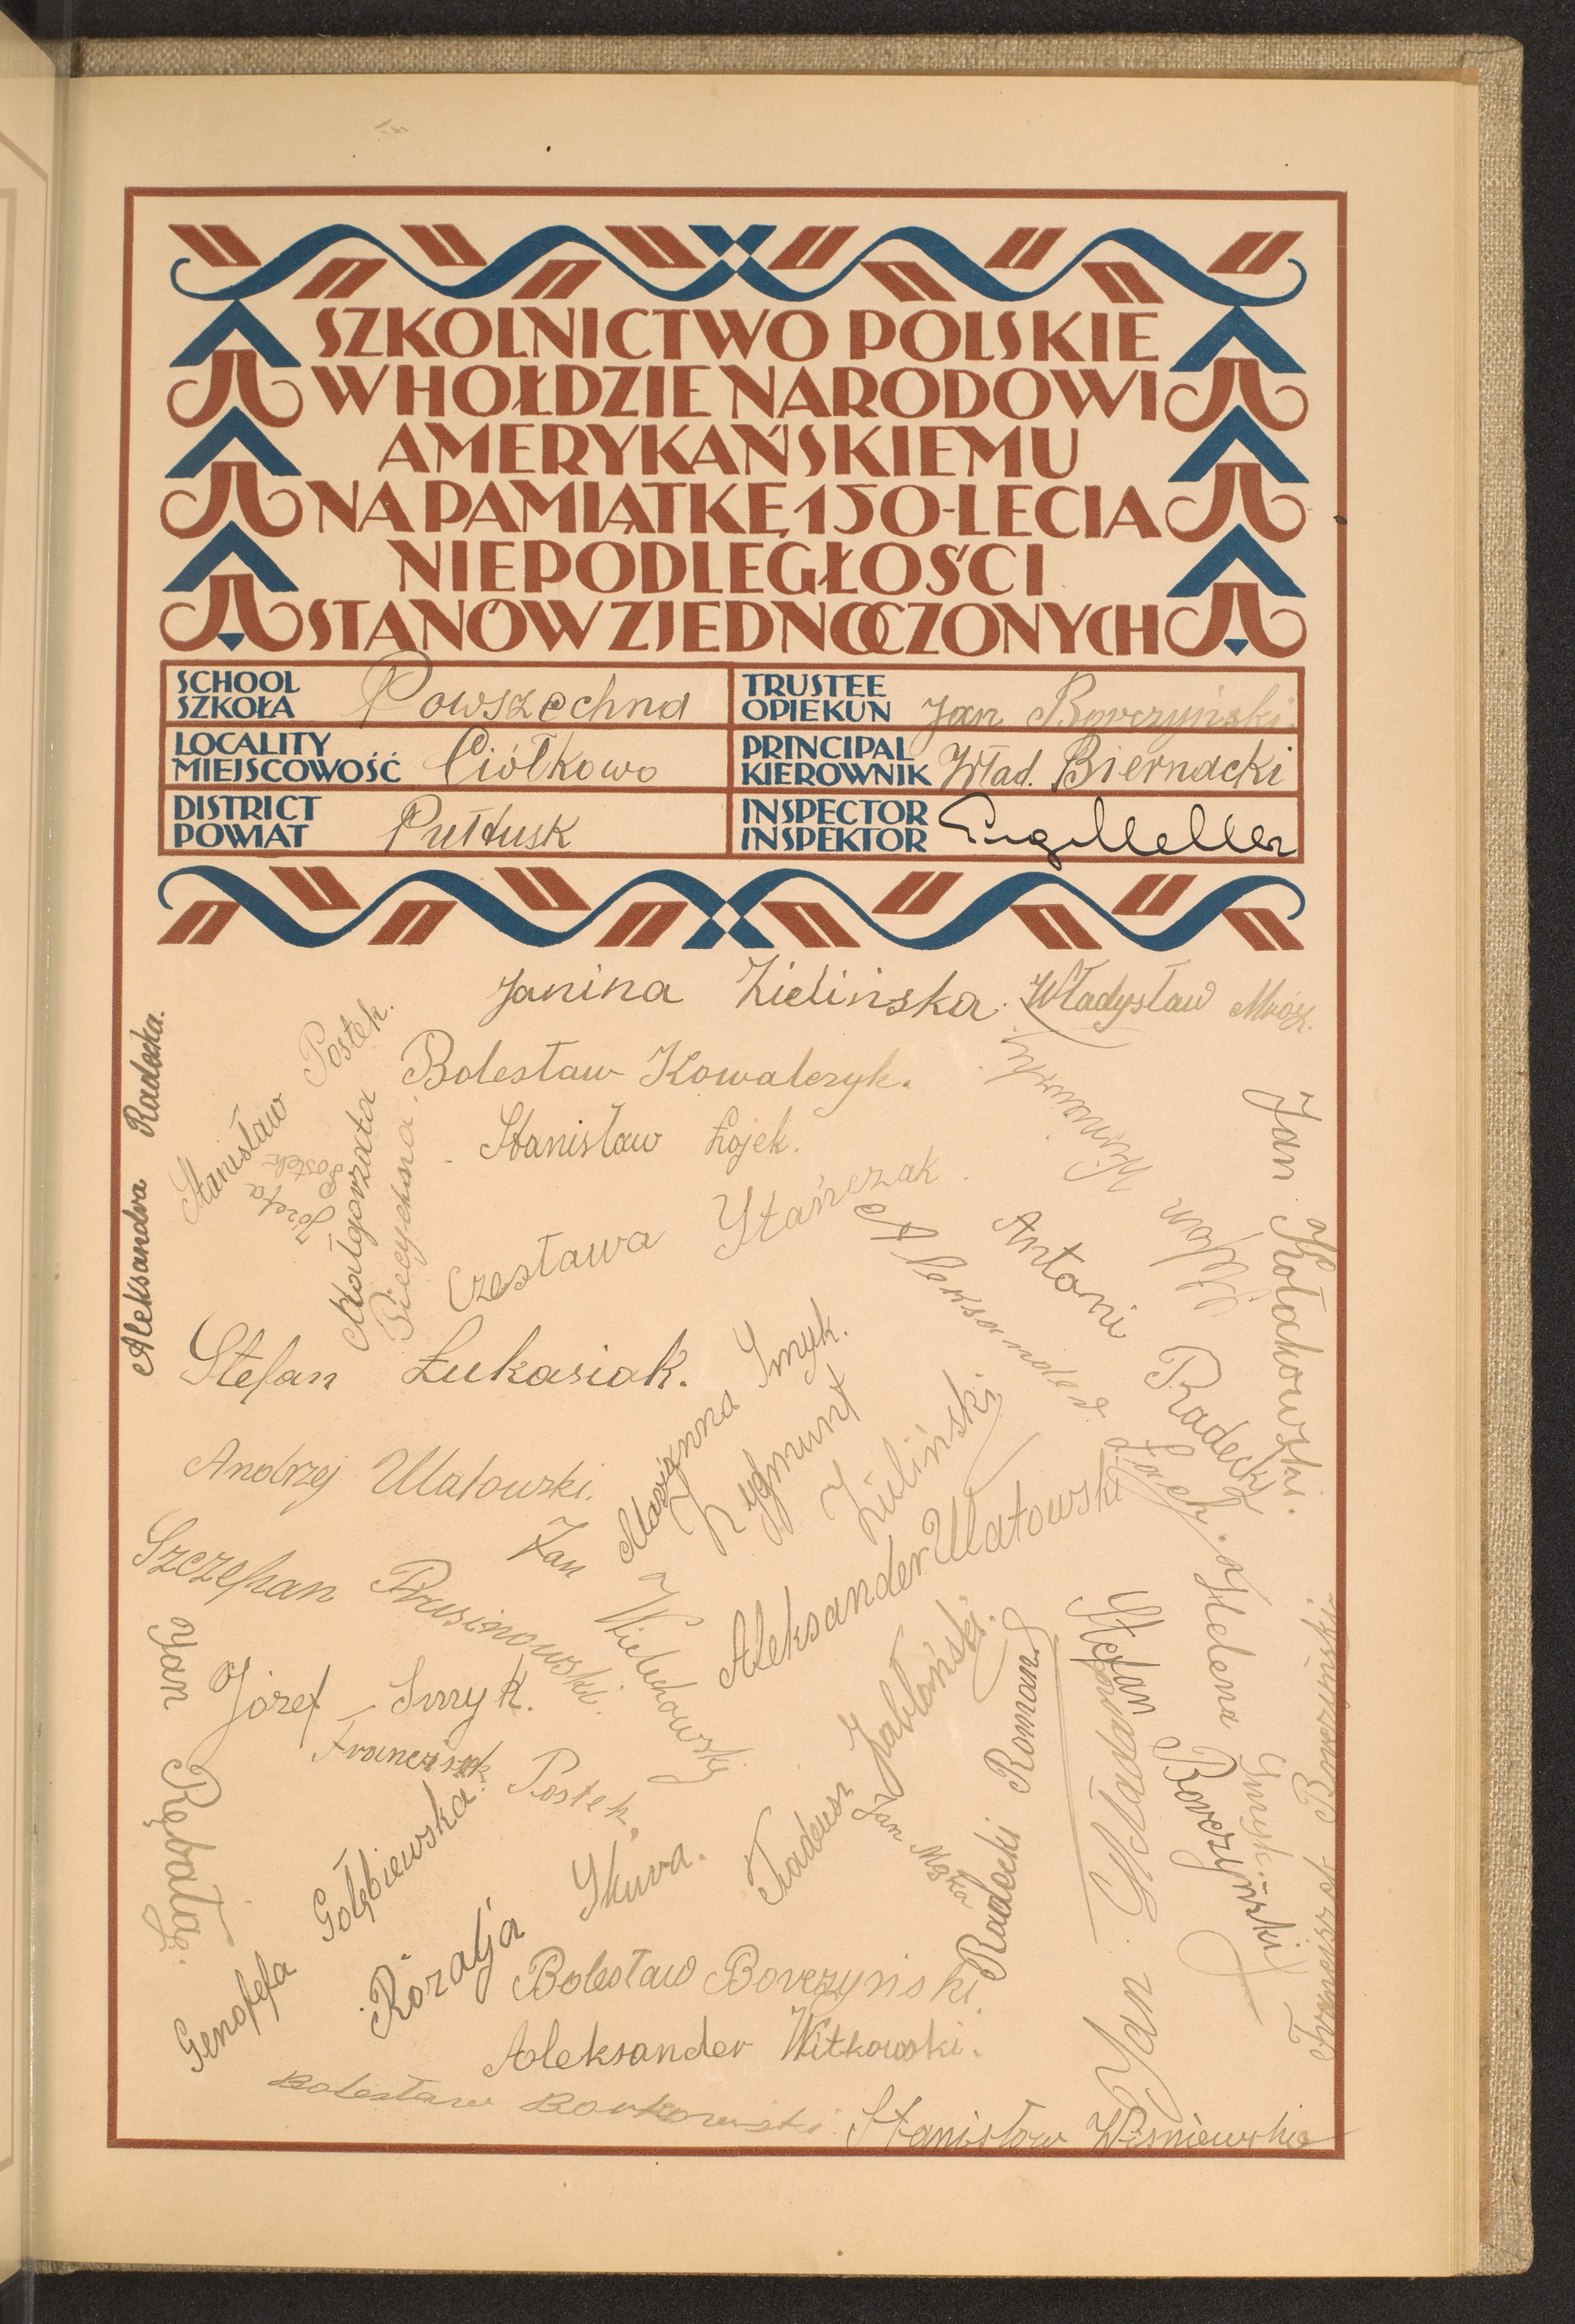 SZKOLNICTWO POLSKIE
W HOŁDZIE NARODOWI
AMERYKAŃSKIEMU
NA PAMIĄTKĘ 150-LECIA
NIEPODLEGŁOŚCI
STANÓW ZJEDNOCZONYCH
SCHOOL
SZKOŁA Powszechna
TRUSTEE
OPIEKUN Jan Borczyński.
LOCALITY
MIEJSCOWOŚĆ Ciółkowo
PRINCIPAL
KIEROWNIK Wład. Biernacki
DISTRICT
POWIAT Pułtusk
INSPECTOR
INSPEKTOR
Janina Zielińska.
Władysław Mróz.
Aleksandra Radecka.
Stanisław Postek.
Józefa Postek
Małgorzata
Bolesław Kowalczyk.
Stanisław Łojek.
Czesława Stańczak.
Jan Kołakowski.
Antoni Radecki
Aleksander
Stefan Łukasiak.
Marjanna Smyk.
Zygmunt Zieliński
Andrzej Ulatowski.
Aleksander Ulatowski
Szczepan Prusinowski.
Jan Wielechowski
Józef Smyk.
Franciszek Postek.
Jan Rębała
Genofefa Gołębiewska.
Rózalja Skura.
Tadeusz Jabłoński.
Jan
Radecki Roman
Stefan Borczyński
Helena Smyk.
Franciszek Borczyński
Jan
Bolesław Borczyński.
Aleksander Witkowski.
Bolesław Borkowski.
Stanisław Wiśniewski